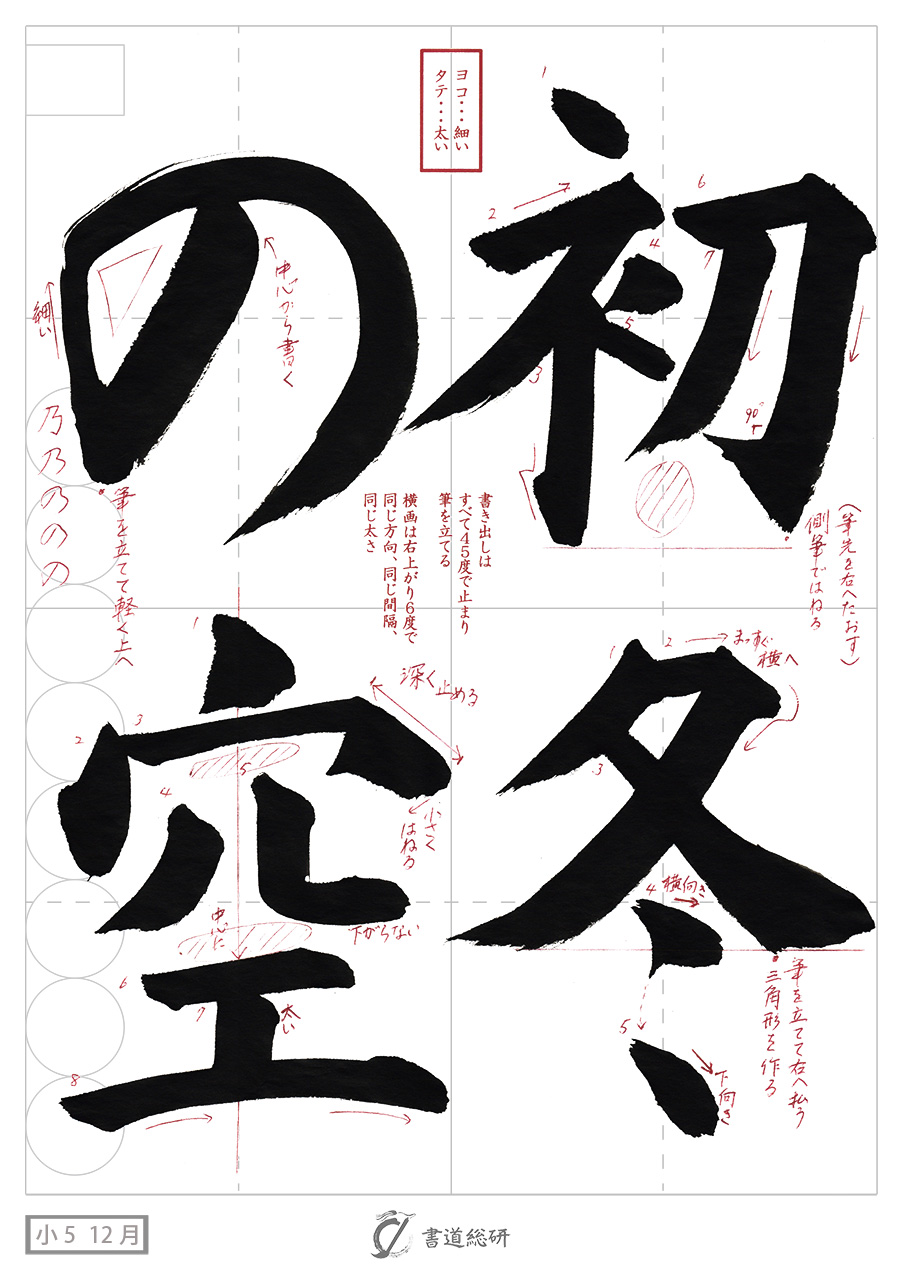 初冬
の空
ヨコ・・・細い
タテ・・・太い
1
2
3
4
5
6
7
90°
(筆先を右へたおす)
側筆ではねる
中心から書く
細い
乃
乃
の
の
の
筆を立てて軽く上へ
書き出しは
すべて45度で止まり
筆を立てる
横画は右上がり6度で
同じ方向、同じ間隔、
同じ太さ
1
2
まっすぐ
横へ
3
4
横向き
5
下向き
筆を立てて右へ払う
三角形を作る
1
2
3
4
5
深く止める
小さく
はねる
中心に
下がらない
6
7
太い
8
小5 12月
書道総研